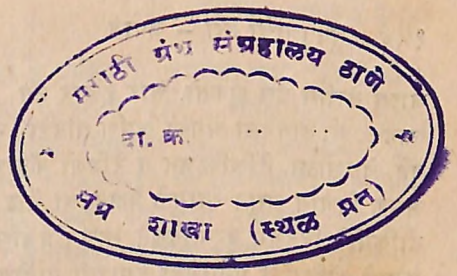 मराठी ग्रंथ संग्रहालय ठाणे
दा. क्र. .... ..
संग्र शाखा (स्थळ प्रत)